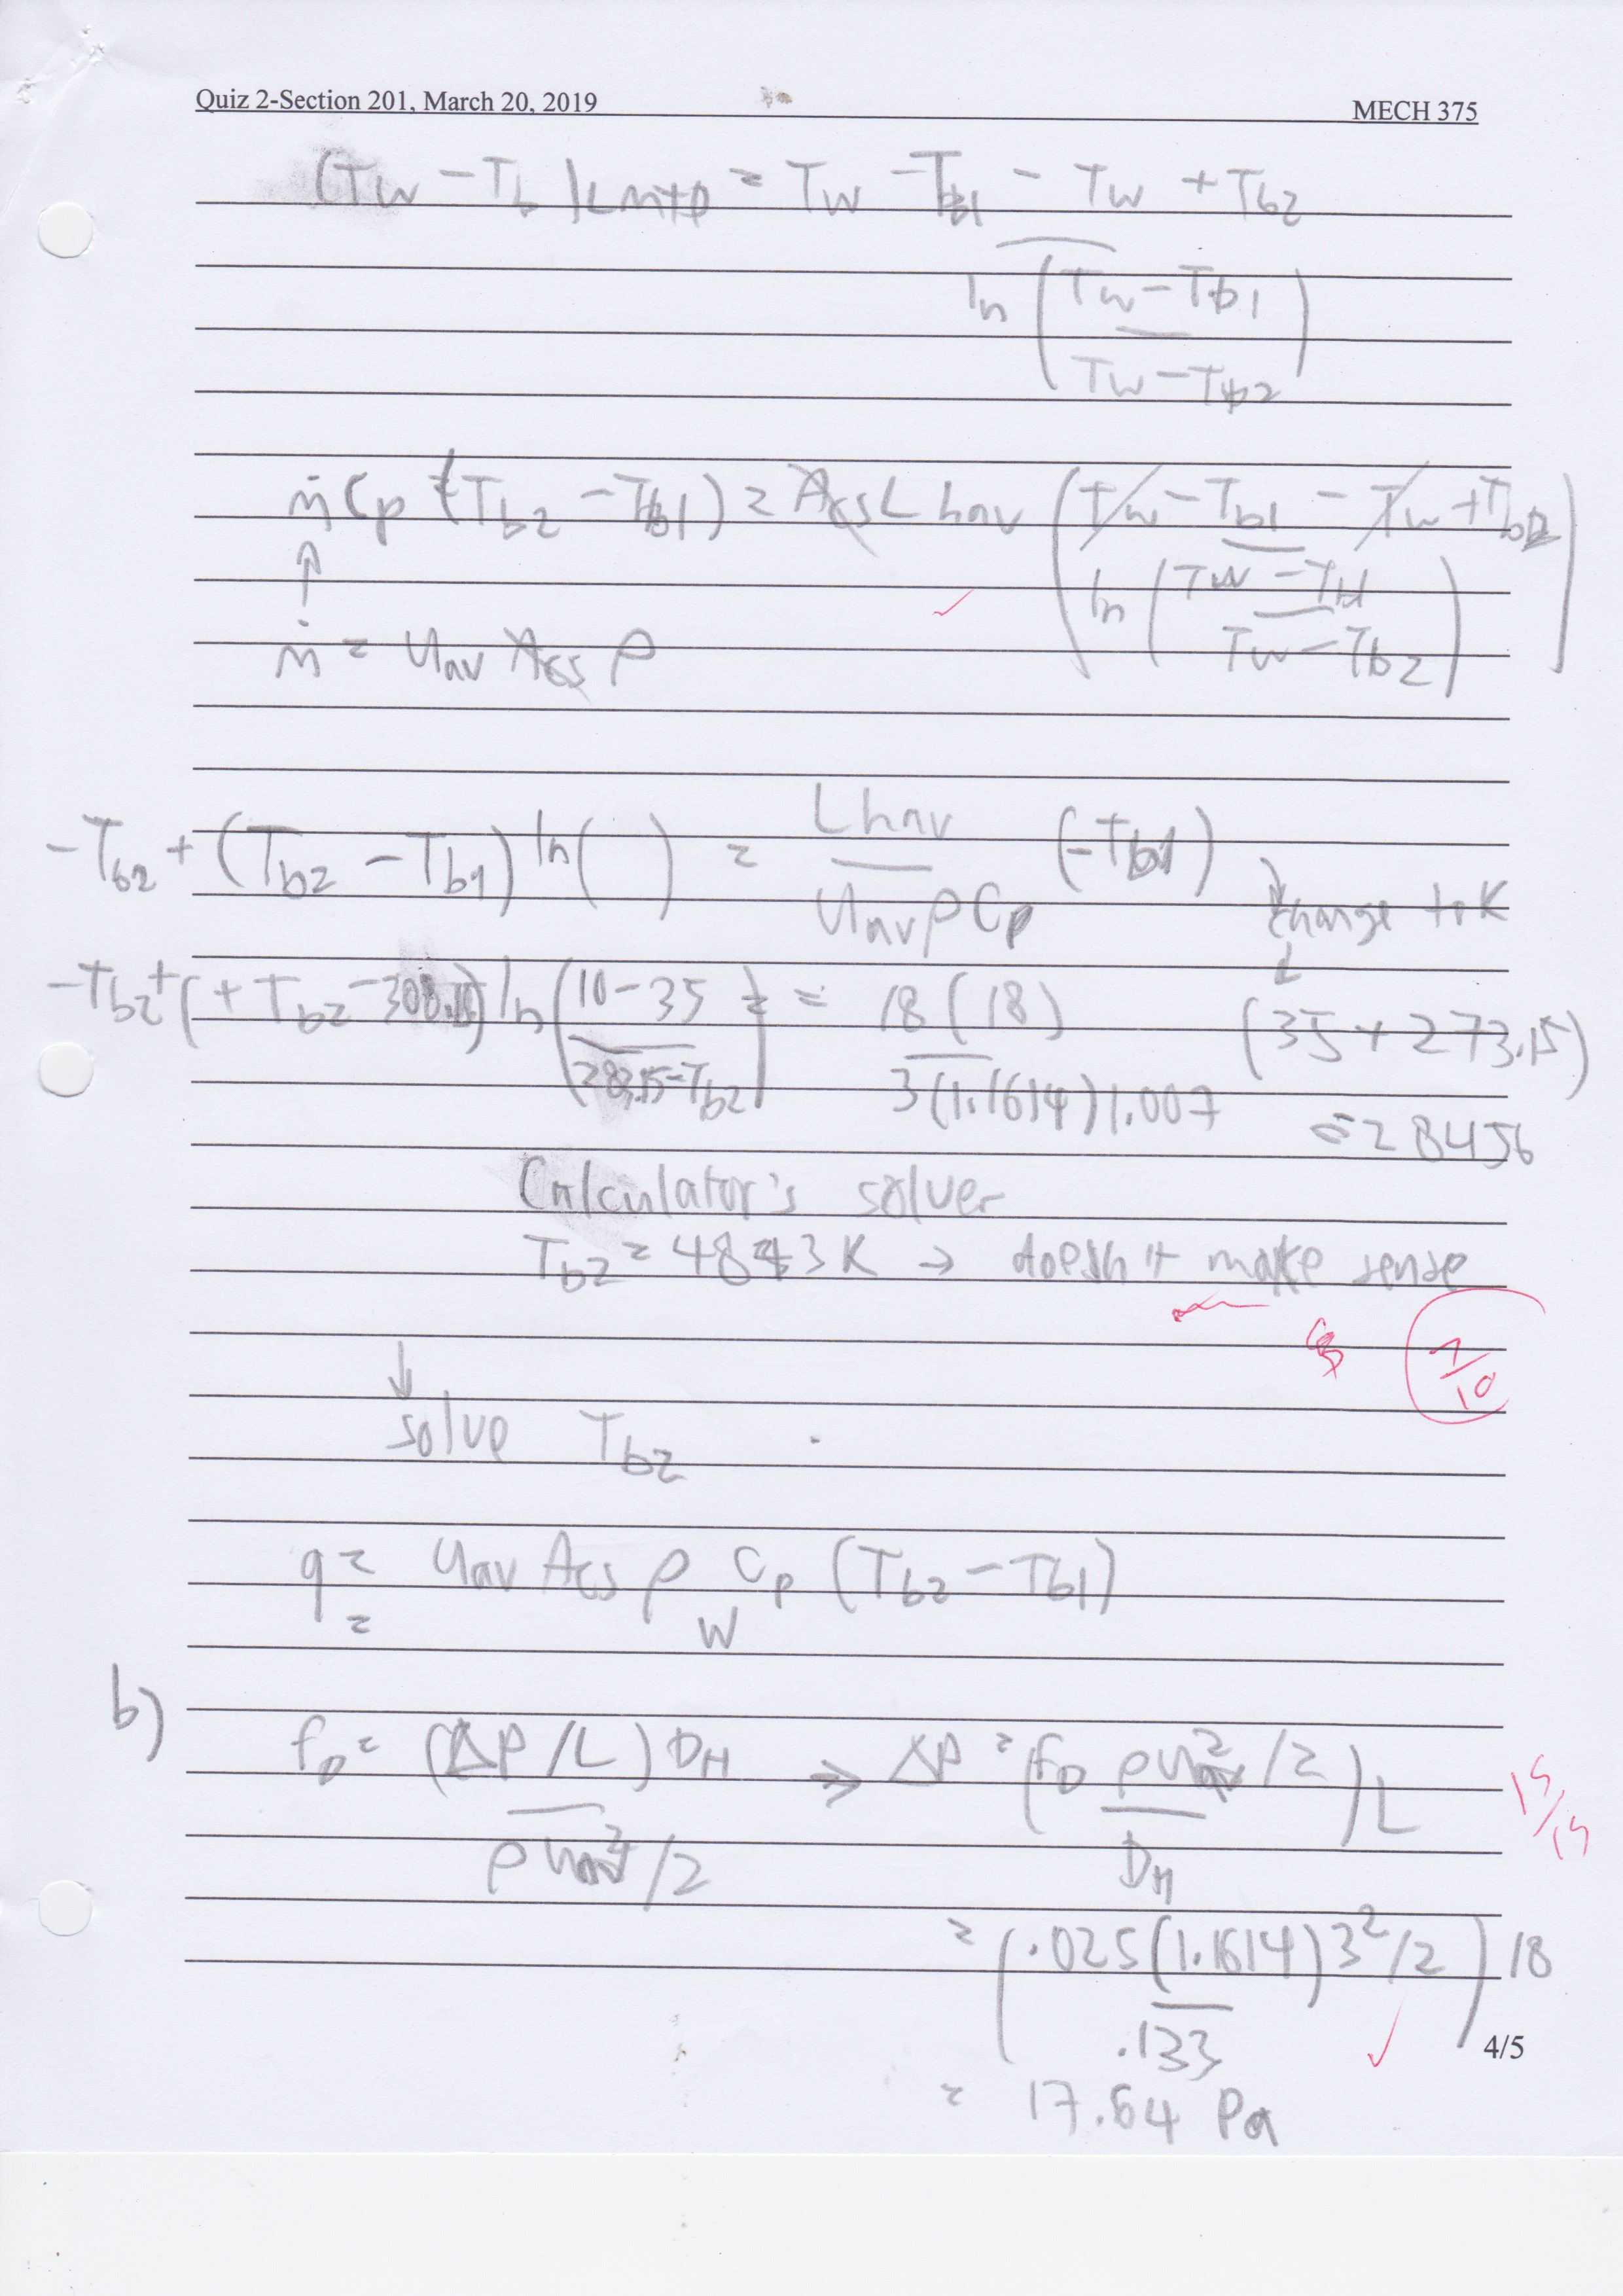 Quiz 2-Section 201, March 20, 2019 MECH 375
(Tw - Tb)LMTD = Tw - Tb1 - Tw + Tb2
ln (Tw - Tb1
Tw - Tb2)
ṁ Cp (Tb2 - Tb1) = Acs L hav (Tw - Tb1 - Tw + Tb2
ln (Tw - Tb1
↑
ṁ = Uav Acs ρ
Tw - Tb2))
L hav
-Tb2 + (Tb2 - Tb1) ln( ) = (-Tb1)
Uav ρ Cp
change to K
↓
-Tb2 + (+Tb2 - 308.15) ln (10 - 35 = 18 (18) (35 + 273.15)
283.15 - Tb2) 3(1.1614)1.007
= 28456
Calculator's solver
Tb2 = 4843 K → doesn't make sense
7/10
↓
solve Tb2
q = Uav Acs ρ Cp (Tb2 - Tb1)
= W
b)
fD = (ΔP/L) DH ⇒ ΔP = (fD ρ Uav²/2) L
ρ Uav²/2 DH
15/15
= (.025(1.1614)3²/2) 18
.133
4/5
= 17.64 Pa